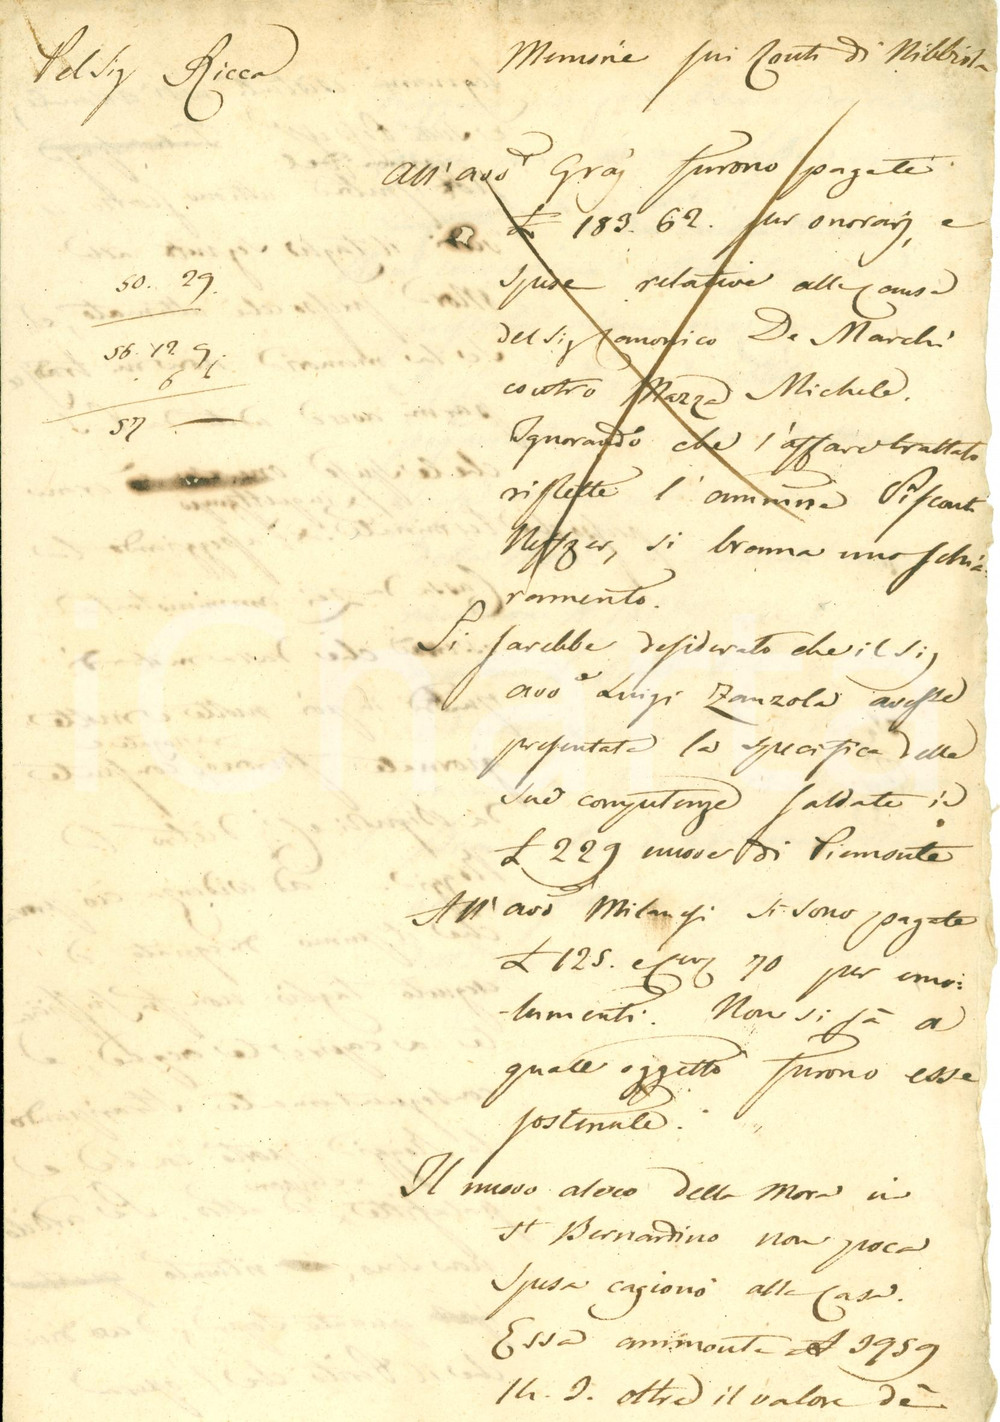 Pel Sig Ricca
Memorie sui Conti di Nibbiola
50. 29.
56. 12 9.
6
57
All' avvo Graj furono pagate
£ 183. 62. per onorarj, e
spese relative alla Causa
del Sig Canonico De Marchi
contro Mazza Michele.
Ignorando che l'affare trattato
riflette l' ammne Visconti
si brama uno schia-
ramento.
Si sarebbe desiderato che il Sig
avvo Luigi Zanzola avesse
presentata la specifica delle
sue competenze saldate in
£ 229 nuove di Piemonte
All' avvo Milanesi si sono pagate
£ 125. e 70 per emo:
-lumenti. Non si sà a
quale oggetto furono esse
sostenute.
Il nuovo alveo della Mora in
St Bernardino non poca
spesa cagionò alla Casa.
Essa ammonta a £ 3959
14. 3. oltre il valore de